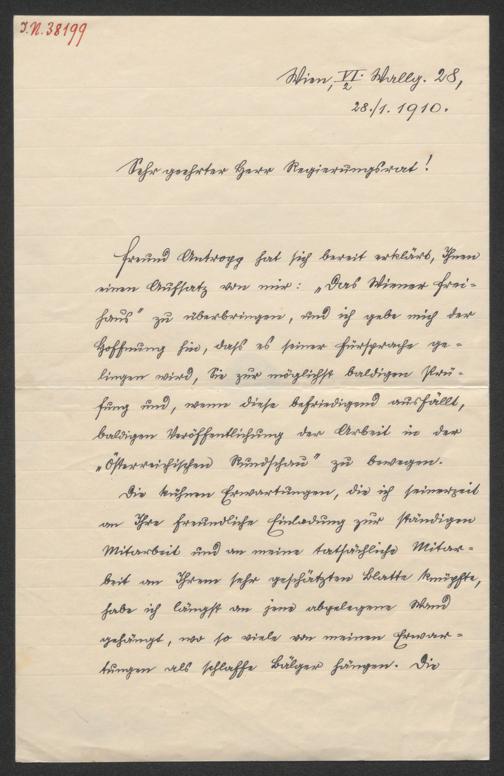 I.N. 38199
Wien, VI/2 Wallg. 28,
28./1. 1910.
Sehr geehrter Herr Regierungsrat!
Freund Antropp hat sich bereit erklärt, Ihnen
einen Aufsatz von mir: „Das Wiener Frei-
haus" zu überbringen, und ich gebe mich der
Hoffnung hin, dass es seiner Fürsprache ge-
lingen wird, Sie zur möglichst baldigen Prü-
fung und, wenn diese befriedigend ausfällt,
baldigen Veröffentlichung der Arbeit in der
„Österreichischen Rundschau" zu bewegen.
Die kühnen Erwartungen, die ich seinerzeit
an Ihre freundliche Einladung zur ständigen
Mitarbeit und an meine tatsächliche Mitar-
beit an Ihrem sehr geschätzten Blatte knüpfte,
habe ich längst an jene abgelegene Wand
gehängt, wo so viele von meinen Erwar-
tungen als schlaffe Bälger hängen. Die